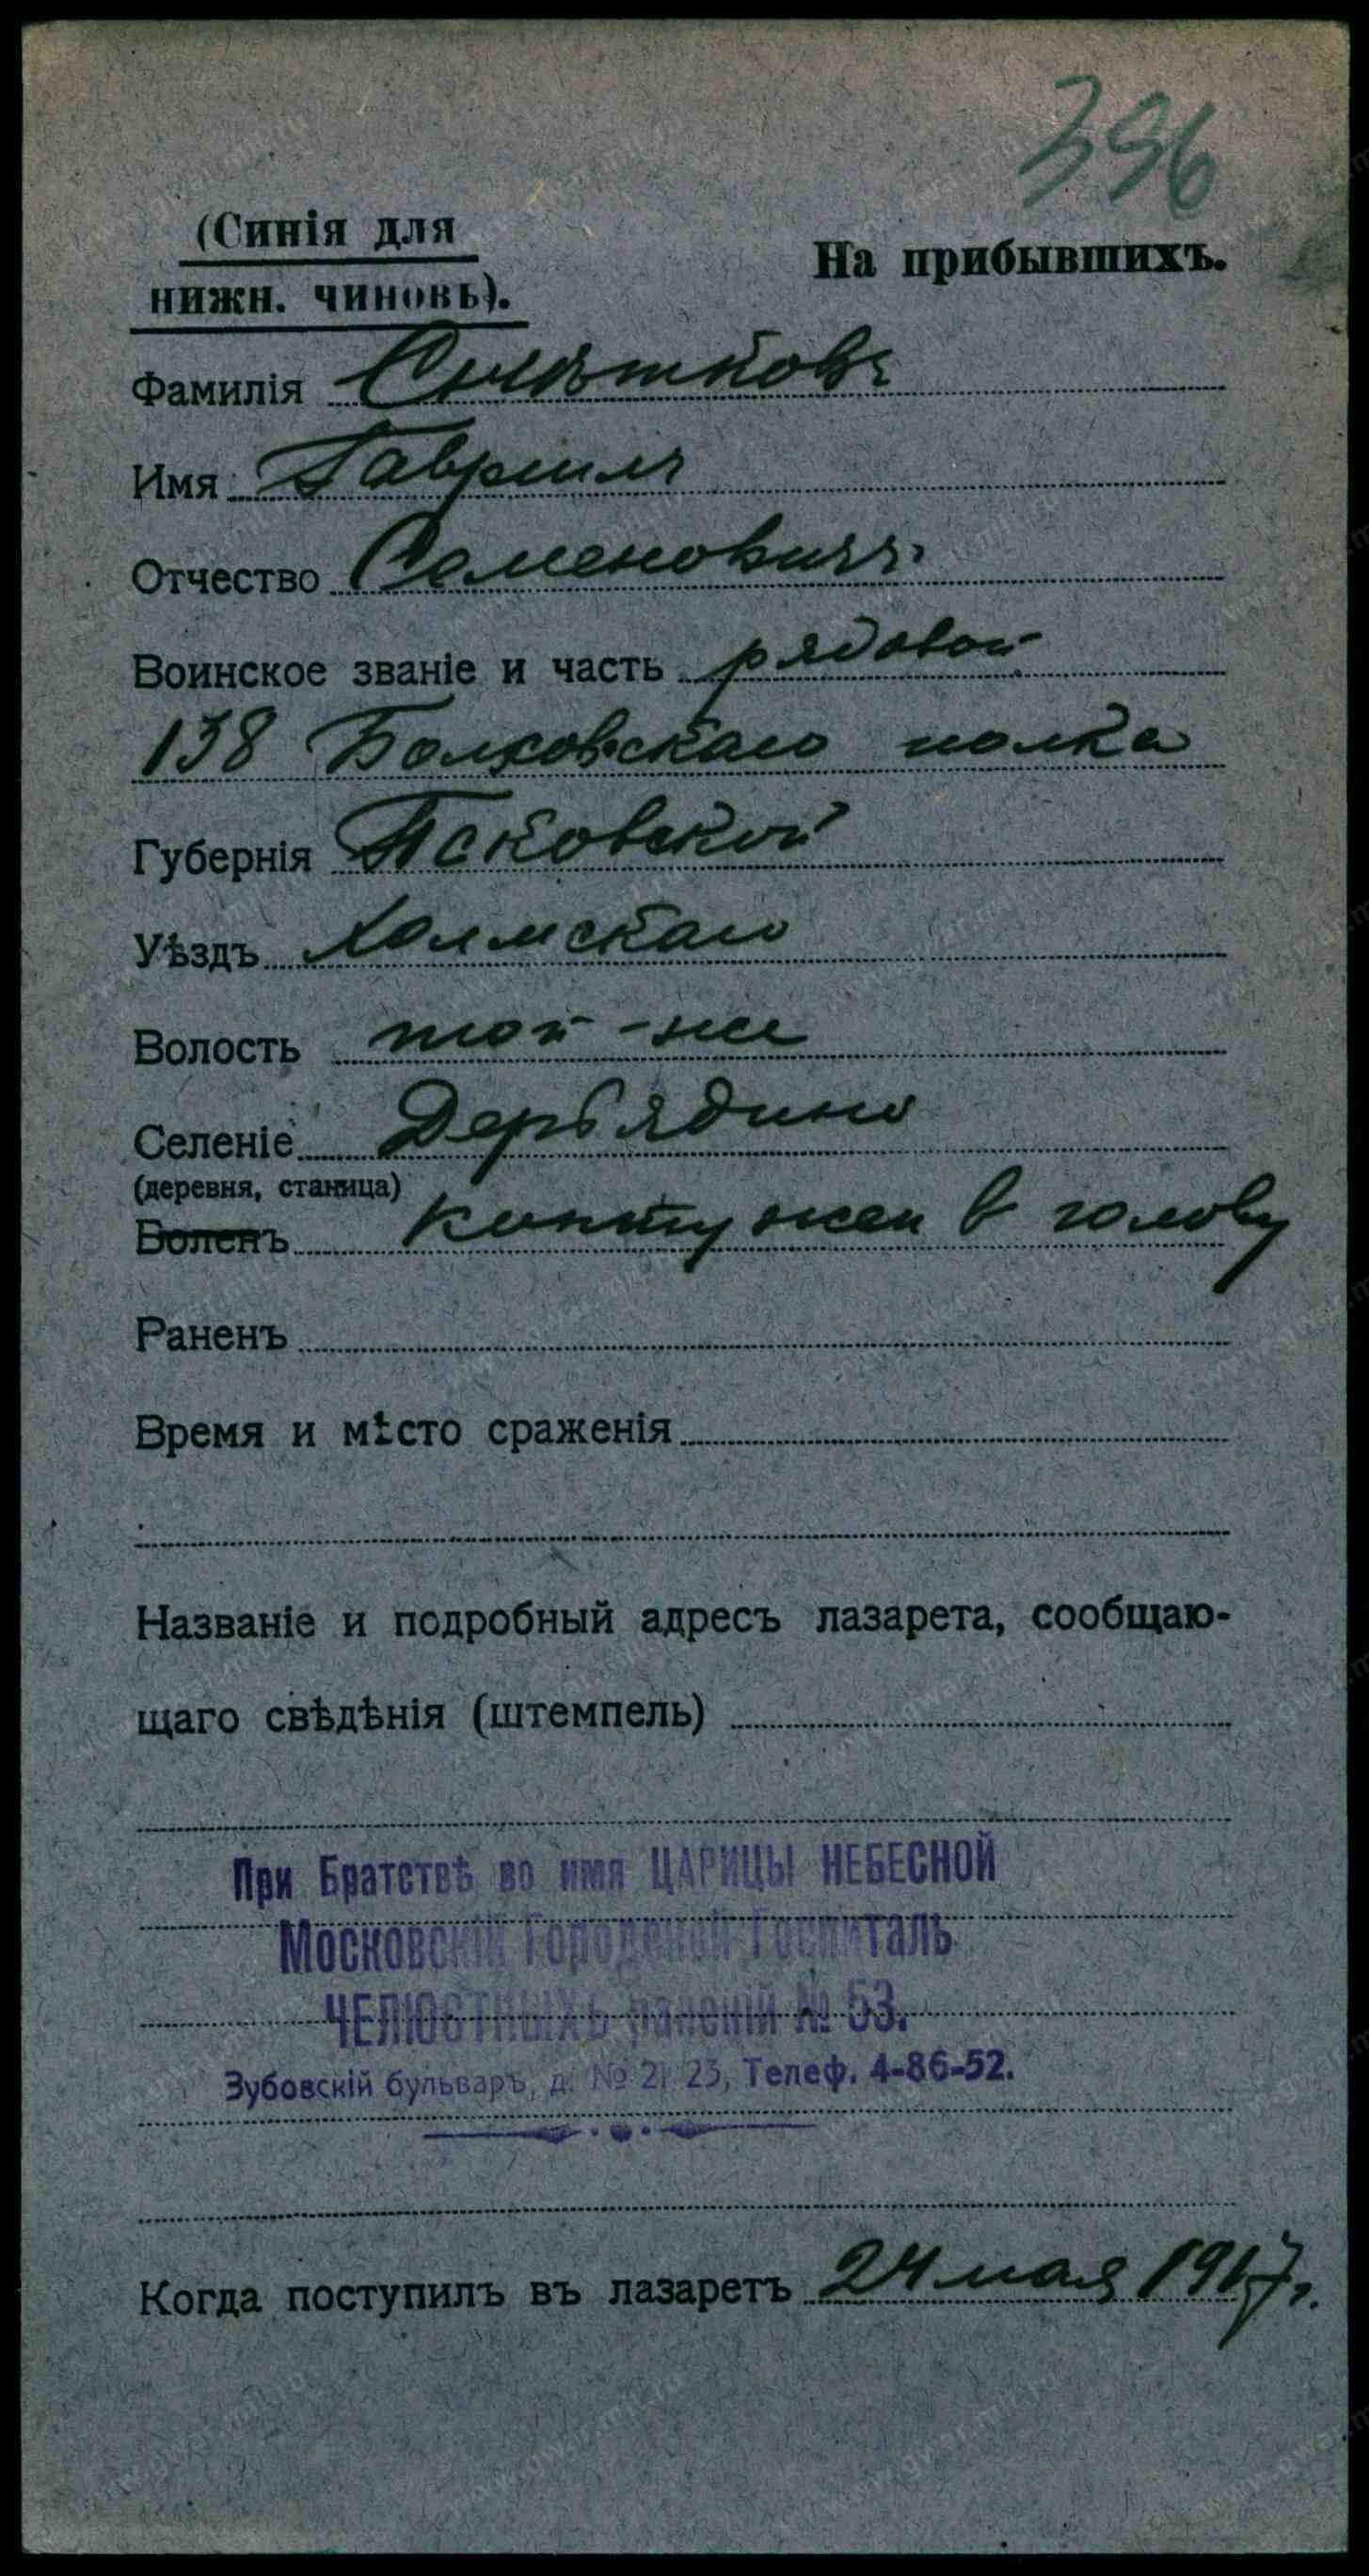 396
(Синія для
нижн. чиновъ).
На прибывшихъ.
Фамилія Снѣтковъ
Имя Гавриилъ
Отчество Семеновичъ
Воинское званіе и часть рядовой
138 Болховскаго полка
Губернія Псковской
Уѣздъ Холмскаго
Волость той-же
Селеніе Дербядино
(деревня, станица)
Боленъ контужен в голову
Раненъ
Время и мѣсто сраженія
Названіе и подробный адресъ лазарета, сообщаю-
щаго свѣдѣнія (штемпель)
При Братствѣ во имя ЦАРИЦЫ НЕБЕСНОЙ
Московскій Городской Госпиталь
ЧЕЛЮСТНЫХЪ раненій № 53.
Зубовскій бульваръ, д. № 21 23, Телеф. 4-86-52.
Когда поступилъ въ лазаретъ 24 мая 1917 г.